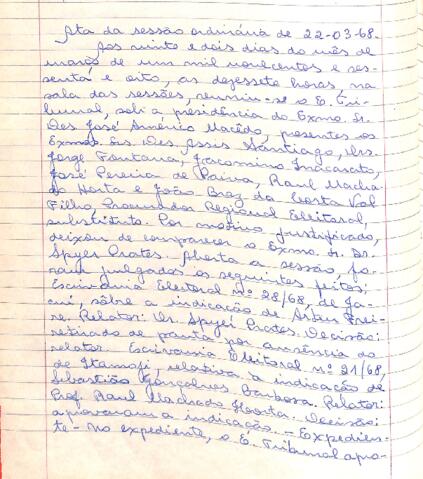 Ata da sessão ordinária de 22-03-68.
Aos vinte e dois dias do mês de
março de um mil novecentos e ses-
senta e oito, às dezessete horas, na
sala das sessões, reuniu-se o E. Tri-
bunal, sob a presidência do Exmo. Sr.
Des. José Américo Macêdo, presentes os
Exmos. Srs. Des. Assis Santiago, Drs.
Jorge Fontana, Jacomino Inacarato,
José Pereira de Paiva, Raul Macha-
do Horta e João Braz da Costa Val
Filho, Procurador Regional Eleitoral,
substituto. Por motivo justificado,
deixou de comparecer o Exmo. Sr. Dr.
Spyer Prates. Aberta a sessão, fo-
ram julgados os seguintes feitos:
Escrivania Eleitoral nº 28/68, de Ja-
cuí, sôbre a indicação de Frei-
re. Relator: Dr. Spyer Prates. Decisão:
retirado de pauta por ausência do
relator. Escrivania Eleitoral nº 21/68,
de Itamoji, relativa à indicação de
Sebastião Gonçalves Barbosa. Relator:
Prof. Raul Machado Horta. Decisão:
aprovaram a indicação. - Expedien-
te - No expediente, o E. Tribunal apro-